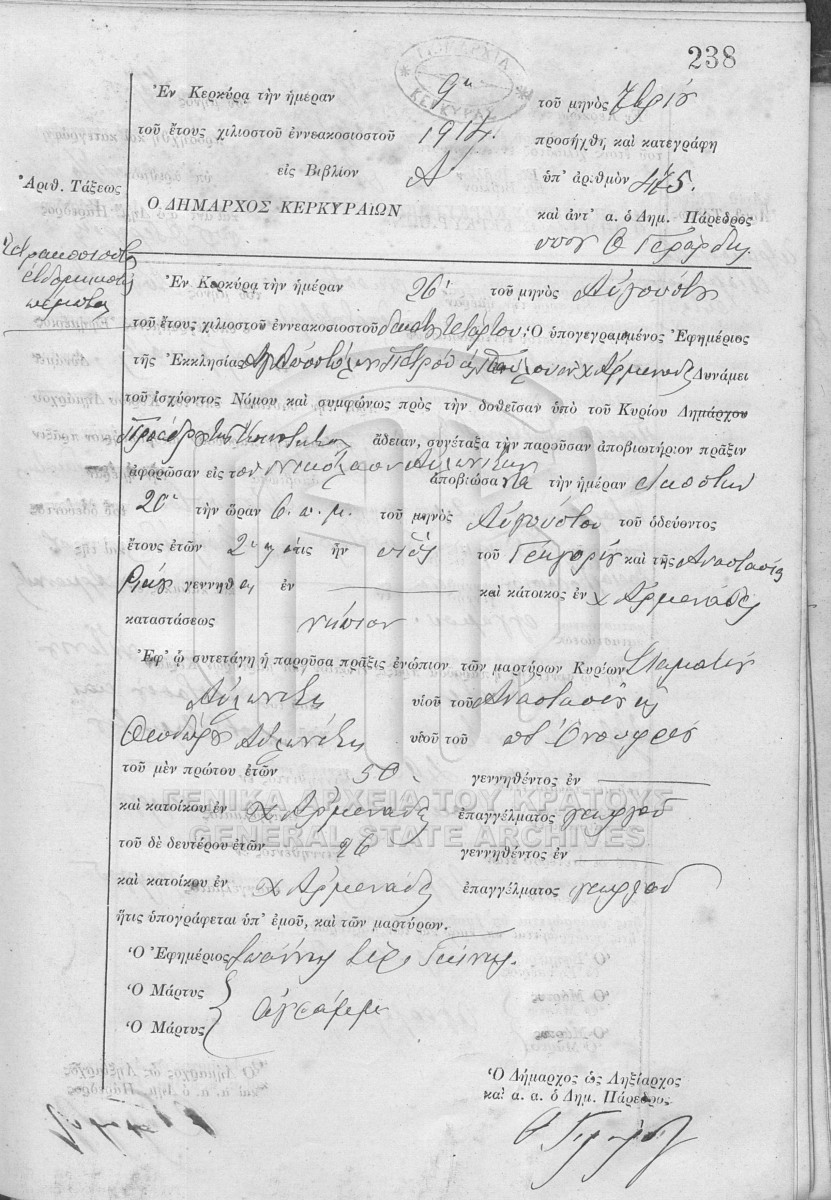 238
ΔΗΜΑΡΧΙΑ ΚΕΡΚΥΡΑΣ
Ἐν Κερκύρᾳ τὴν ἡμέραν 9ην τοῦ μηνὸς 7βρίου
τοῦ ἔτους χιλιοστοῦ ἐννεακοσιοστοῦ 1914. προσήχθη καὶ κατεγράφη
εἰς Βιβλίον Α' ὑπ' ἀριθμὸν 475.
Ἀριθ. Τάξεως
Ο ΔΗΜΑΡΧΟΣ ΚΕΡΚΥΡΑΙΩΝ καὶ ἀντ' α. ὁ Δημ. Πάρεδρος
πέμπτον
Ἐν Κερκύρᾳ τὴν ἡμέραν 26' τοῦ μηνὸς Αὐγούστου
τοῦ ἔτους χιλιοστοῦ ἐννεακοσιοστοῦ δεκάτου τετάρτου, Ὁ ὑπογεγραμμένος Ἐφημέριος
τῆς Ἐκκλησίας Ἁγ. Ἀποστόλων Πέτρου καὶ Παύλου ἐν χ. Ἀρμενάδες Δυνάμει
τοῦ ἰσχύοντος Νόμου καὶ συμφώνως πρὸς τὴν δοθεῖσαν ὑπὸ τοῦ Κυρίου Δημάρχου
Προέδρου τῆς Κοινότητος ἄδειαν, συνέταξα τὴν παροῦσαν ἀποβιωτήριον πρᾶξιν
ἀφορῶσαν εἰς τὸν Νικόλαον Αὐλωνίτην ἀποβιώσαντα τὴν ἡμέραν εἰκοστὴν
20' τὴν ὥραν 6. π. μ. τοῦ μηνὸς Αὐγούστου τοῦ ὁδεύοντος
ἔτους ἐτῶν 2 ὅστις ἦν υἱὸς τοῦ Γρηγορίου καὶ τῆς Ἀναστασίας
γεννηθεὶς ἐν καὶ κάτοικος ἐν χ. Ἀρμενάδες
καταστάσεως νήπιον
Ἐφ' ᾧ συνετάγη ἡ παροῦσα πρᾶξις ἐνώπιον τῶν μαρτύρων Κυρίων Σταματίου
Αὐλωνίτη υἱοῦ τοῦ Ἀναστασίου καὶ
Θεοδώρου Αὐλωνίτη υἱοῦ τοῦ ποτὲ Ὀνουφρίου
τοῦ μὲν πρώτου ἐτῶν 50 γεννηθέντος ἐν
καὶ κατοίκου ἐν χ. Ἀρμενάδες ἐπαγγέλματος γεωργοῦ
ΓΕΝΙΚΑ ΑΡΧΕΙΑ ΤΟΥ ΚΡΑΤΟΥΣ
GENERAL STATE ARCHIVES
τοῦ δὲ δευτέρου ἐτῶν 26 γεννηθέντος ἐν
καὶ κατοίκου ἐν χ. Ἀρμενάδες ἐπαγγέλματος γεωργοῦ
ἥτις ὑπογράφεται ὑπ' ἐμοῦ, καὶ τῶν μαρτύρων.
Ὁ Ἐφημέριος Ἰωάννης
Ὁ Μάρτυς
Ὁ Μάρτυς ἀγράμματοι
Ὁ Δήμαρχος ὡς Ληξίαρχος
καὶ α. α. ὁ Δημ. Πάρεδρος